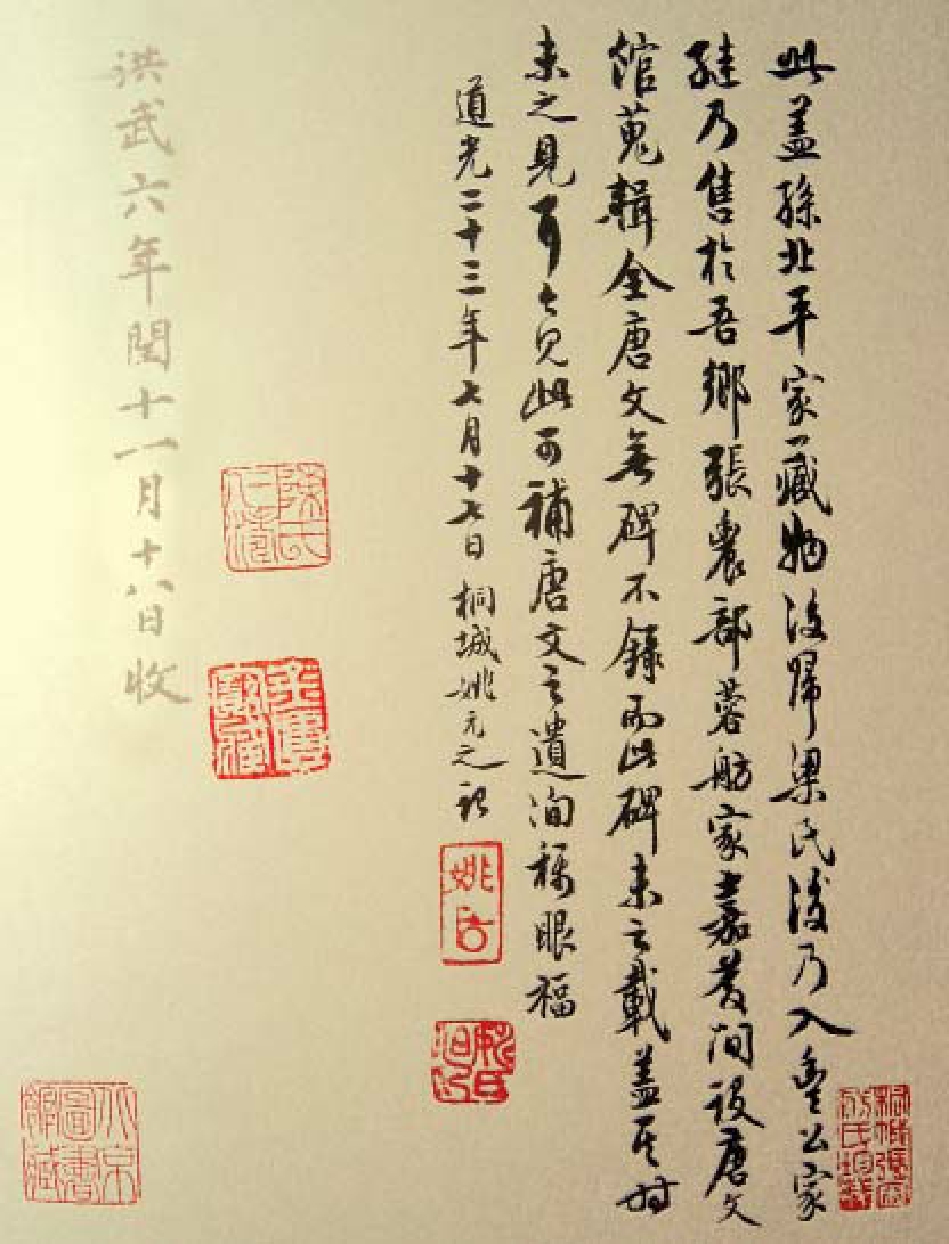 此蓋孫北平家藏物後歸梁氏後乃入公家
乃售於吾鄉張農部蓉舫家嘉慶間設唐文
館蒐輯全唐文無碑不錄而此碑未之載蓋其時
未之見耳今見此可補唐文之遺洵稱眼福
道光二十三年七月十七日桐城姚元之記
姚
姚氏
陳氏
洪武六年閏十一月十八日收
北京圖書館藏